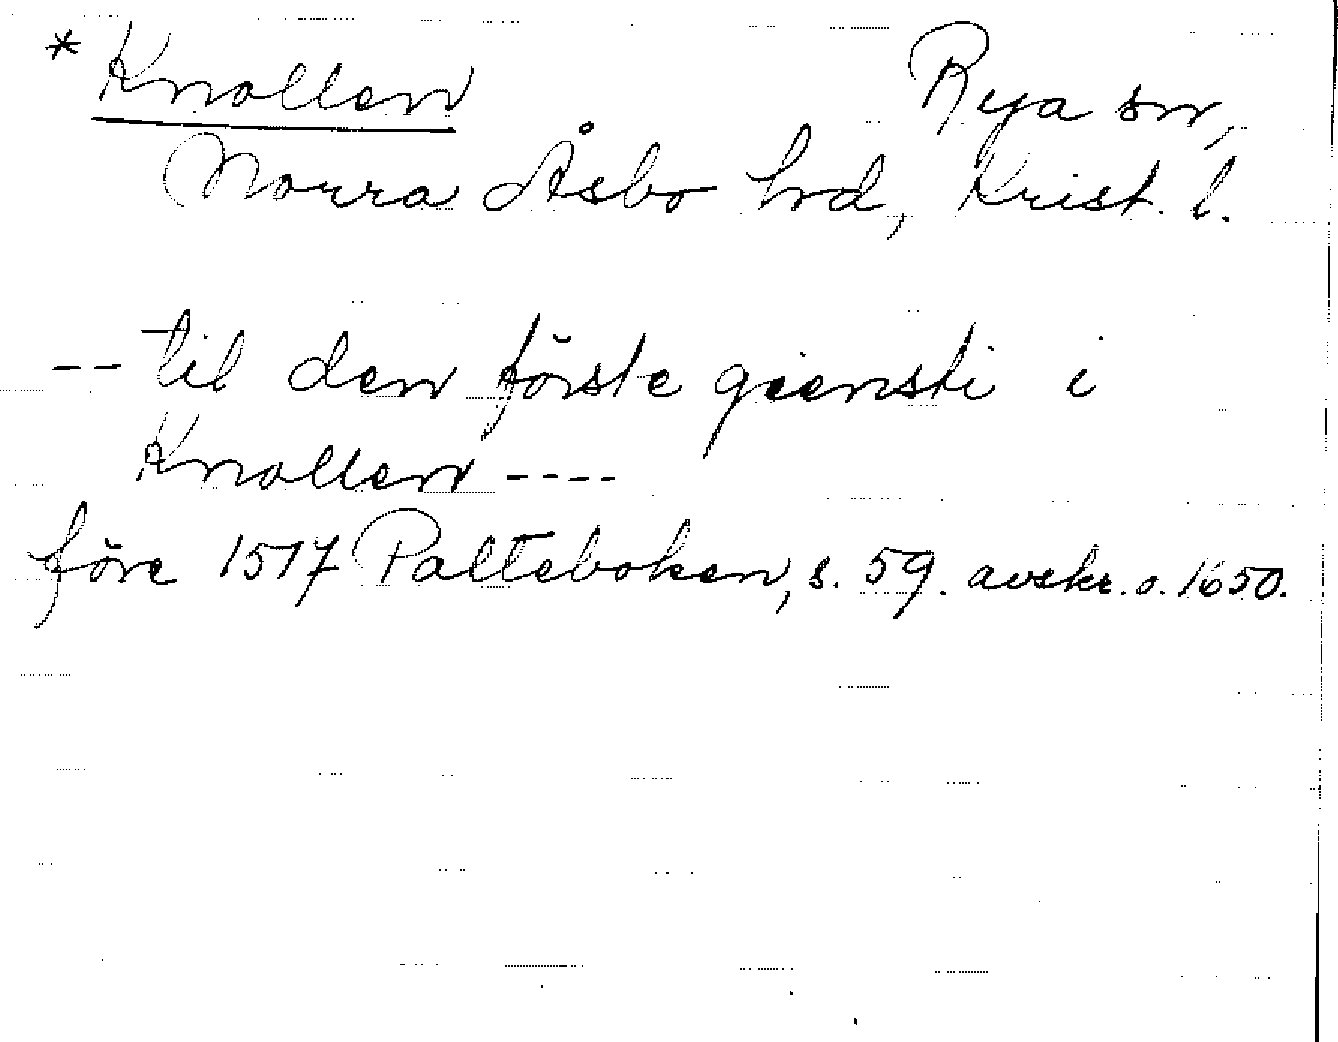 * Knollen Rya sn,
Norra Åsbo hrd, Krist. l.
-- til den förste giensti i
Knollen ----
före 1517 Palteboken, s. 59. avskr. o. 1650.